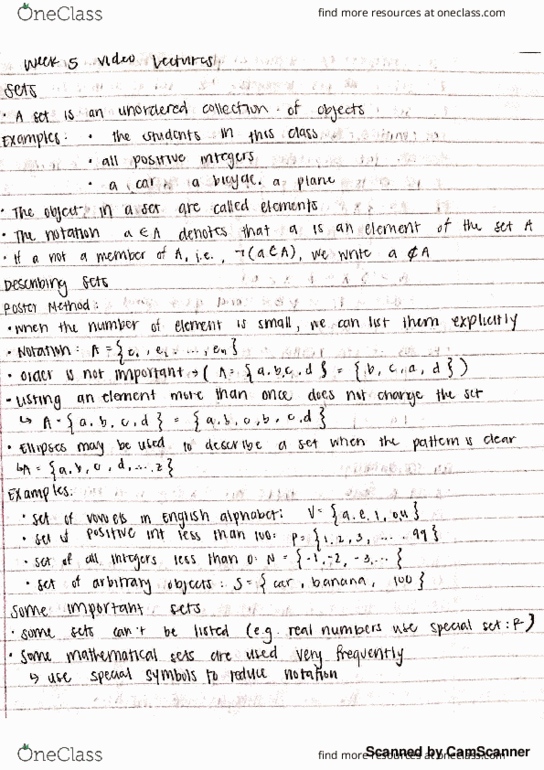 OneClass
find more resources at oneclass.com
Week 5 video lectures
Sets
• A set is an unordered collection of objects
Examples: • the students in this class
• all positive integers
• a car, a bicycle, a plane
• The object in a set are called elements
• The notation a ∈ A denotes that a is an element of the set A
• If a not a member of A, i.e., ¬(a ∈ A), we write a ∉ A
Describing Sets
Roster Method:
• when the number of element is small, we can list them explicitly
• Notation: A = {e₁, e₂ ..., eₙ}
• order is not important → (A = {a,b,c,d} = {b, c, a, d})
• Listing an element more than once does not change the set
↳ A = {a, b, c, d} = {a, b, a, b, c, d}
• Ellipses may be used to describe a set when the pattern is clear
↳ A = {a, b, c, d, ... z}
Examples:
• set of vowels in English alphabet: V = {a, e, i, o, u}
• set of positive int less than 100: P = {1, 2, 3, ... 99}
• set of all integers less than 0: N = {-1, -2, -3, ...}
• set of arbitrary objects: S = {car, banana, 100}
Some important sets
• some sets can't be listed (e.g. real numbers use special set: R)
• Some mathematical sets are used very frequently
↳ use special symbols to reduce notation
OneClass
find more resources at oneclass.com
Scanned by CamScanner